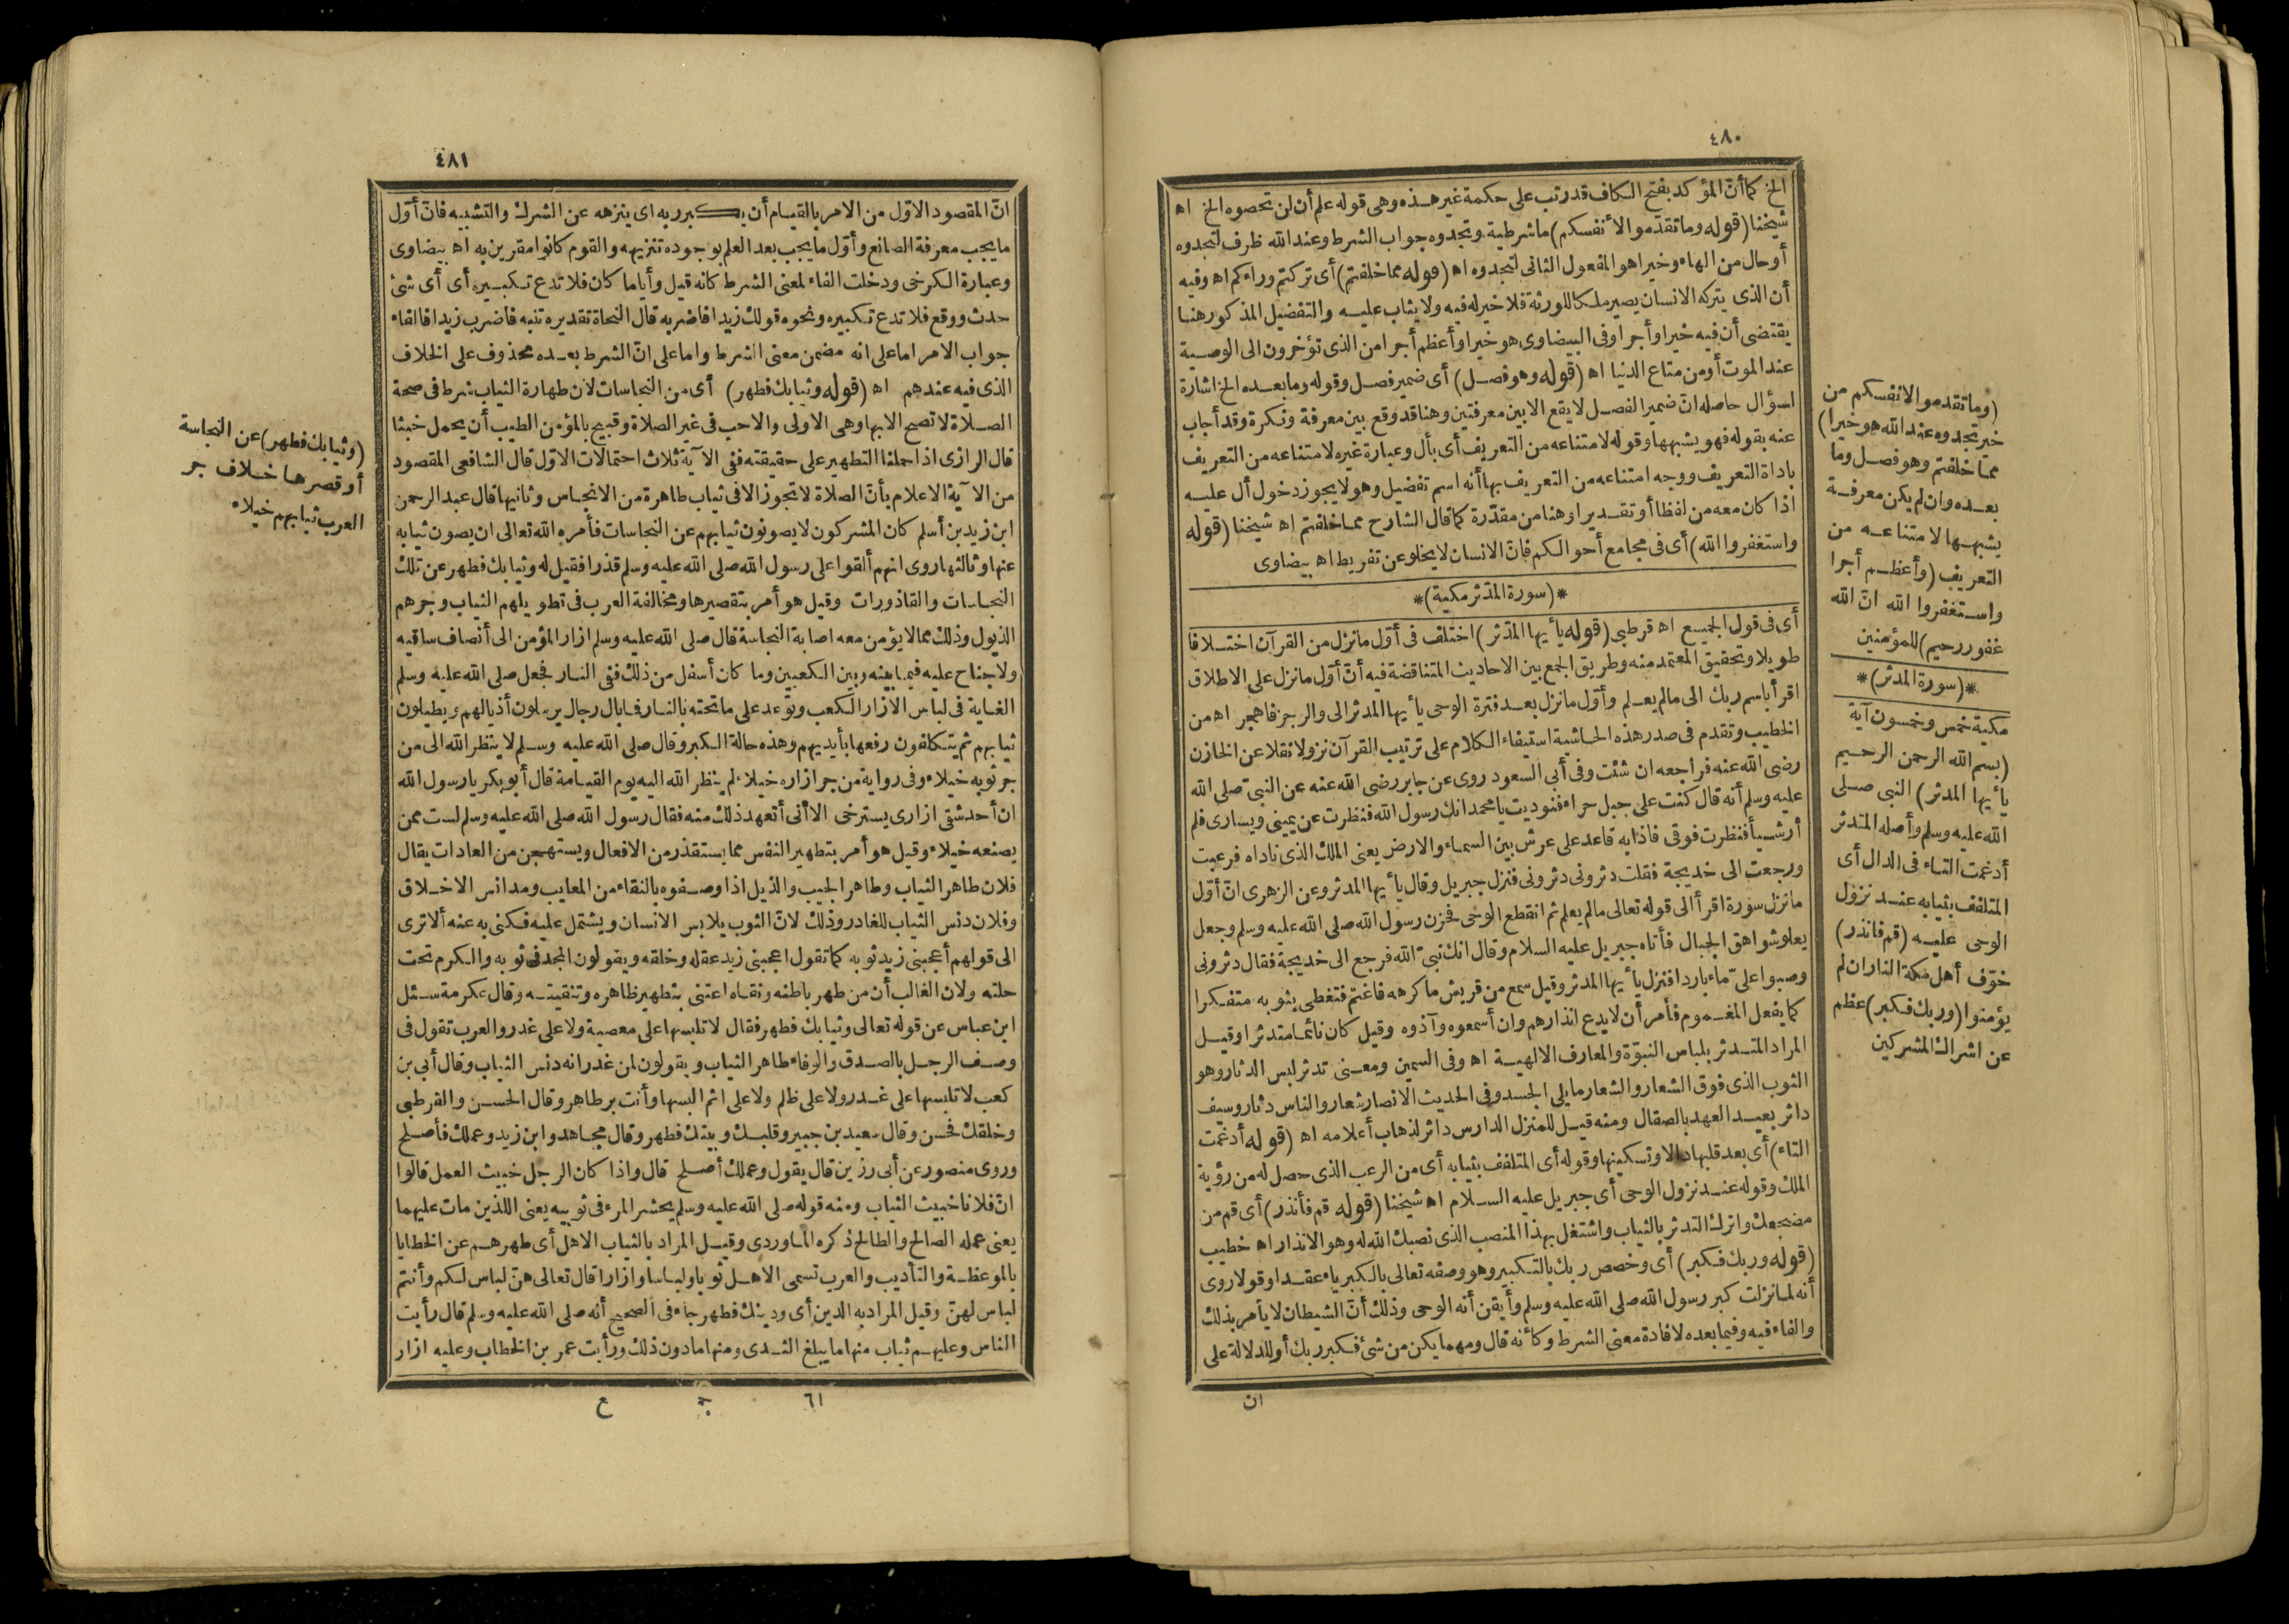 ٤٨٠
الخ كما أنّ المؤكد بفتح الكاف قدرتب على حكمة غير هذه وهى قوله علم أن لن تحصوه الخ اه
شيخنا (قوله وما تقدّموا لأنفسكم) ما شرطية وتجدوه جواب الشرط وعند الله ظرف لتجدوه
أو حال من الهاء وخيرا هو المفعول الثانى لتجدوه اه (قوله مما خلفتم) أى تركتم وراءكم اه وفيه
أن الذى يتركه الانسان يصير ملكا للورثة فلا خير له فيه ولا يثاب عليه والتفضيل المذكور هنا
يقتضى أن فيه خيرا وأجرا وفى البيضاوى هو خيرا وأعظم أجرا من الذى تؤخرون الى الوصية
عند الموت أو من متاع الدنيا اه (قوله وهو فصل) أى ضمير فصل وقوله وما بعده الخ اشارة
لسؤال حاصله انّ ضمير الفصل لا يقع الا بين معرفتين وهنا قد وقع بين معرفة ونكرة وقد أجاب
عنه بقوله فهو يشبهها وقوله لامتناعه من التعريف أى بأل وعبارة غيره لامتناعه من التعريف
باداة التعريف ووجه امتناعه من التعريف بها أنه اسم تفضيل وهو لا يجوز دخول أل عليه
اذا كان معه من لفظا أو تقديرا وهنا من مقدّرة كما قال الشارح مما خلفتم اه شيخنا (قوله
واستغفروا الله) أى فى مجامع أحوالكم فانّ الانسان لا يخلو عن تفريط اه بيضاوى
*(سورة المدّثر مكية)*
أى فى قول الجميع اه قرطبى (قوله يا أيها المدّثر) اختلف فى أوّل ما نزل من القرآن اختلافا
طويلا وتحقيق المعتمد منه وطريق الجمع بين الاحاديث المتناقضة فيه أنّ أوّل ما نزل على الاطلاق
اقرأ باسم ربك الى مالم يعلم وأوّل ما نزل بعد فترة الوحى يا أيها المدثر الى والرجز فاهجر اه من
الخطيب وتقدم فى صدر هذه الحاشية استيفاء الكلام على ترتيب القرآن نزولا نقلا عن الخازن
رضى الله عنه فراجعه ان شئت وفى أبى السعود روى عن جابر رضى الله عنه عن النبىّ صلى الله
عليه وسلم أنه قال كنت على جبل حراء فنوديت يا محمد انك رسول الله فنظرت عن يمينى ويسارى فلم
أر شيأ فنظرت فوقى فاذا به قاعد على عرش بين السماء والارض يعنى الملك الذى ناداه فرعبت
ورجعت الى خديجة فقلت دثرونى دثرونى فنزل جبريل وقال يا أيها المدثر وعن الزهرى انّ أوّل
ما نزل سورة اقرأ الى قوله تعالى مالم يعلم ثم انقطع الوحى فحزن رسول الله صلى الله عليه وسلم وجعل
يعلو شواهق الجبال فأتاه جبريل عليه السلام وقال انك نبىّ الله فرجع الى خديجة فقال دثرونى
وصبوا علىّ ماء باردا فنزل يا أيها المدثر وقيل سمع من قريش ما كرهه فاغتم فتغطى بثوبه متفكرا
كما يفعل المغموم فأمر أن لا يدع انذارهم وان أسمعوه وآذوه وقيل كان نائما متدثرا وقيل
المراد المتدثر بلباس النبوّة والمعارف الالهية اه وفى السمين ومعنى تدثر لبس الدثار وهو
الثوب الذى فوق الشعار والشعار ما يلى الجسد وفى الحديث الانصار شعار والناس دثار وسيف
داثر بعيد العهد بالصقال ومنه قيل للمنزل الدارس داثر لذهاب أعلامه اه (قوله أدغمت
التاء) أى بعد قلبها دالا وتسكينها وقوله أى المتلفف بثيابه أى من الرعب الذى حصل له من رؤية
الملك وقوله عند نزول الوحى أى جبريل عليه السلام اه شيخنا (قوله قم فأنذر) أى قم من
مضجعك واترك التدثر بالثياب واشتغل بهذا المنصب الذى نصبك الله له وهو الانذار اه خطيب
(قوله وربك فكبر) أى وخصص ربك بالتكبير وهو وصفه تعالى بالكبرياء عقدا وقولا روى
أنه لما نزلت كبر رسول الله صلى الله عليه وسلم وأيقن أنه الوحى وذلك أنّ الشيطان لا يأمر بذلك
والفاء فيه وفيما بعده لافادة معنى الشرط وكأنه قال ومهما يكن من شئ فكبر ربك أو للدلالة على
ان
(وما تقدموا لانفسكم من
خير تجدوه عند الله هو خيرا)
مما خلفتم وهو فصل وما
بعده وان لم يكن معرفة
يشبهها لامتناعه من
التعريف (وأعظم أجرا
واستغفروا الله انّ الله
غفور رحيم) للمؤمنين
*(سورة المدثر)*
مكية خمس وخمسون آية
(بسم الله الرحمن الرحيم
يا أيها المدثر) النبى صلى
الله عليه وسلم وأصله المتدثر
أدغمت التاء فى الدال أى
المتلفف بثيابه عند نزول
الوحى عليه (قم فانذر)
خوّف أهل مكة النار ان لم
يؤمنوا (وربك فكبر) عظم
عن اشراك المشركين
٤٨١
انّ المقصود الاوّل من الامر بالقيام أن يكبر ربه اى ينزهه عن الشرك والتشبيه فانّ أوّل
ما يجب معرفة الصانع وأوّل ما يجب بعد العلم بوجوده تنزيهه والقوم كانوا مقرين به اه بيضاوى
وعبارة الكرخى ودخلت الفاء لمعنى الشرط كانه قيل وأياما كان فلا تدع تكبيره أى أى شئ
حدث ووقع فلا تدع تكبيره ونحوه قولك زيدا فاضربه قال النحاة تقديره تنبه فاضرب زيدا فالفاء
جواب الامر اما على انه مضمن معنى الشرط واما على انّ الشرط بعده محذوف على الخلاف
الذى فيه عندهم اه (قوله وثيابك فطهر) أى من النجاسات لان طهارة الثياب شرط فى صحة
الصلاة لا تصح الا بها وهى الاولى والاحب فى غير الصلاة وقبيح بالمؤمن الطيب أن يحمل خبثا
قال الرازى اذا حملنا التطهير على حقيقته ففى الآية ثلاث احتمالات الاوّل قال الشافعى المقصود
من الآية الاعلام بأنّ الصلاة لا تجوز الا فى ثياب طاهرة من الانجاس وثانيها قال عبد الرحمن
ابن زيد بن أسلم كان المشركون لا يصونون ثيابهم عن النجاسات فأمره الله تعالى ان يصون ثيابه
عنها وثالثها روى انهم ألقوا على رسول الله صلى الله عليه وسلم قذرا فقيل له وثيابك فطهر عن تلك
النجاسات والقاذورات وقيل هو أمر بتقصيرها ومخالفة العرب فى تطويلهم الثياب وجرهم
الذيول وذلك مما لا يؤمن معه اصابة النجاسة قال صلى الله عليه وسلم ازار المؤمن الى أنصاف ساقيه
ولا جناح عليه فيما بينه وبين الكعبين وما كان أسفل من ذلك ففى النار فجعل صلى الله عليه وسلم
الغاية فى لباس الازار الكعب وتوعد على ما تحته بالنار فما بال رجال يرسلون أذيالهم ويطيلون
ثيابهم ثم يتكلفون رفعها بأيديهم وهذه حالة الكبر وقال صلى الله عليه وسلم لا ينظر الله الى من
جر ثوبه خيلاء وفى رواية من جر ازاره خيلاء لم ينظر الله اليه يوم القيامة قال أبو بكر يا رسول الله
ان أحد شقى ازارى يسترخى الا أنى أتعهد ذلك منه فقال رسول الله صلى الله عليه وسلم لست ممن
يصنعه خيلاء وقيل هو أمر بتطهير النفس مما يستقذر من الافعال ويستهجن من العادات يقال
فلان طاهر الثياب وطاهر الجيب والذيل اذا وصفوه بالنقاء من المعايب ومدانس الاخلاق
وفلان دنس الثياب للغادر وذلك لانّ الثوب يلابس الانسان ويشتمل عليه فكنى به عنه ألا ترى
الى قولهم أعجبنى زيد ثوبه كما تقول اعجبنى زيد عقله وخلقه ويقولون المجد فى ثوبه والكرم تحت
حلته ولان الغالب أن من طهر باطنه ونقاه اعتنى بتطهير ظاهره وتنقيته وقال عكرمة سئل
ابن عباس عن قوله تعالى وثيابك فطهر فقال لا تلبسها على معصية ولا على غدر والعرب تقول فى
وصف الرجل بالصدق والوفاء طاهر الثياب ويقولون لمن غدر انه دنس الثياب وقال أبى بن
كعب لا تلبسها على غدر ولا على ظلم ولا على اثم البسها وأنت بر طاهر وقال الحسن والقرطبى
وخلقك فحسن وقال سعيد بن جبير وقلبك وبيتك فطهر وقال مجاهد وابن زيد وعملك فأصلح
وروى منصور عن أبى رزين قال يقول وعملك أصلح قال واذا كان الرجل خبيث العمل قالوا
انّ فلانا خبيث الثياب ومنه قوله صلى الله عليه وسلم يحشر المرء فى ثوبيه يعنى اللذين مات عليهما
يعنى عمله الصالح والطالح ذكره الماوردى وقيل المراد بالثياب الاهل أى طهرهم عن الخطايا
بالموعظة والتأديب والعرب تسمى الاهل ثوبا ولباسا وازارا قال تعالى هنّ لباس لكم وأنتم
لباس لهنّ وقيل المراد به الدين أى ودينك فطهر جاء فى الصحيح أنه صلى الله عليه وسلم قال رأيت
الناس وعليهم ثياب منها ما يبلغ الثدى ومنها ما دون ذلك ورأيت عمر بن الخطاب وعليه ازار
٦١ ع
(وثيابك فطهر) عن النجاسة
أو قصرها خلاف جر
العرب ثيابهم خيلاء